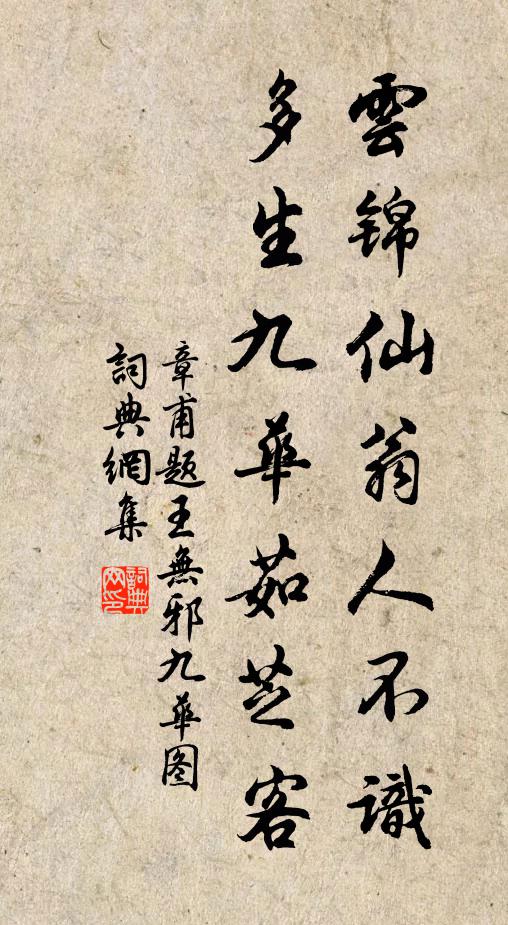 雲锦仙翁人不識
多生九華茹芝客
章甫题王無邪九華图
詞典網集
詞典网印